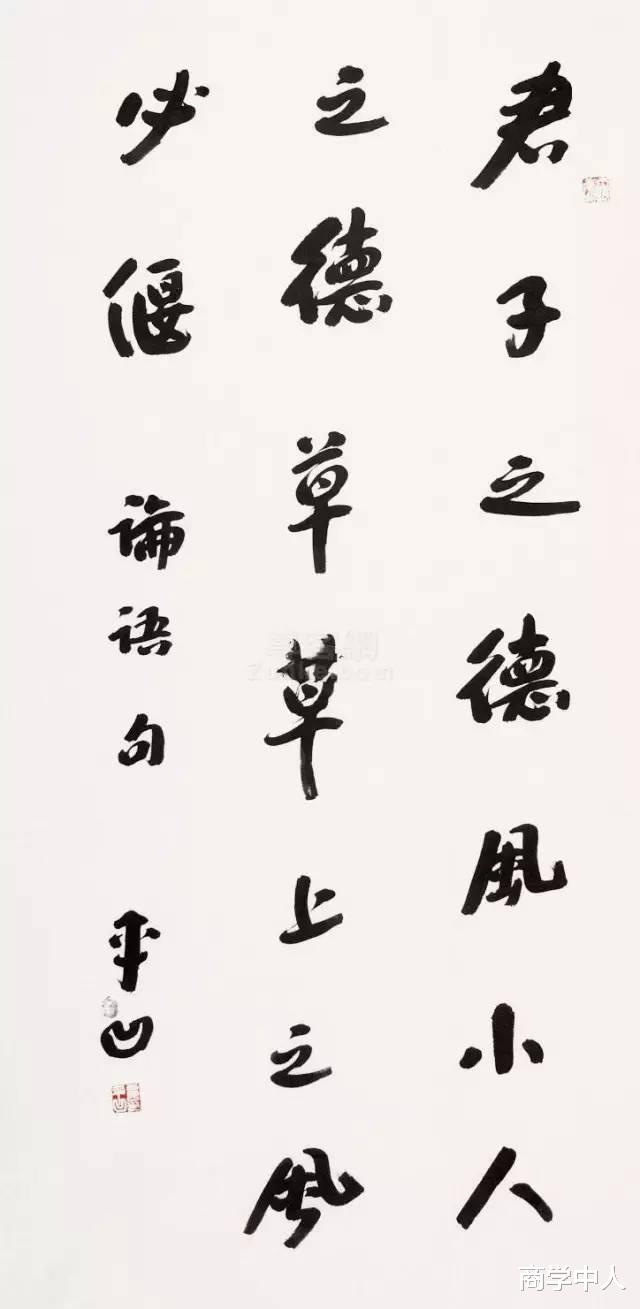 君子之德風小人
之德草草上之風
必偃 論語句 平凹
商学中人